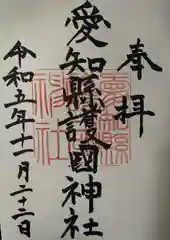 奉拝
愛知縣護國神社
令和五年十一月二十三日